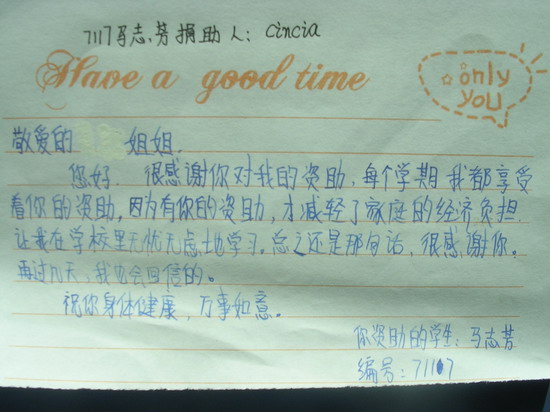 7117马志芳捐助人：cincia
Have a good time
only
you
敬爱的 姐姐.
您好. 很感谢你对我的资助，每个学期我都享受
着你的资助，因为有你的资助，才减轻了家庭的经济负担.
让我在学校里无忧无虑地学习。总之还是那句话，很感谢你。
再过几天，我也会回信的。
祝你身体健康，万事如意。
你资助的学生：马志芳
编号：7117